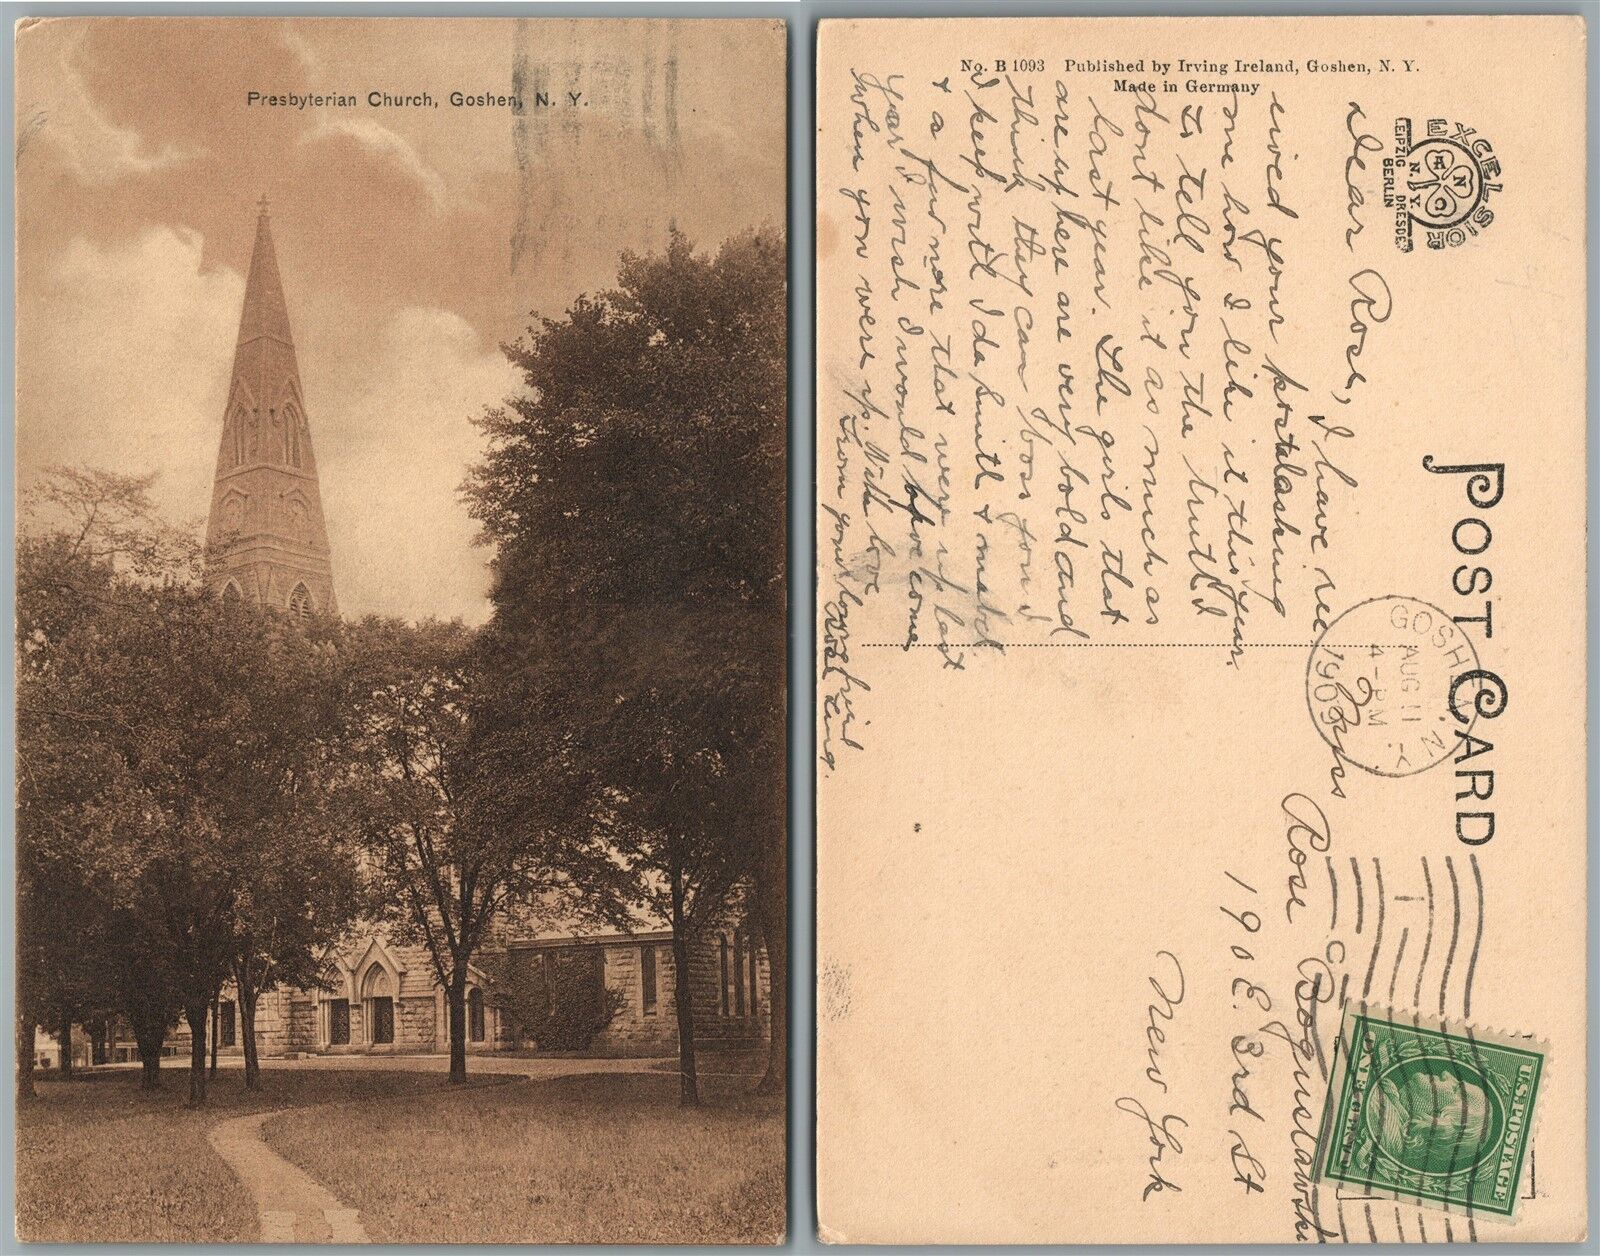 Presbyterian Church, Goshen, N. Y.
No. B 1093 Published by Irving Ireland, Goshen, N. Y.
Made in Germany
EXCELSIOR
A N C
N. Y.
LEIPZIG DRESDEN
BERLIN
POST CARD
Dear Rose, I have rec
eived your postal asking
me how I like it this year.
to tell you the truth I
dont like it as much as
last year. The girls that
are up here are very bold and
think they can boss you &
I keep with Ida Smith &
& a few more that were up last
year I wish I would of come
when you were up. With love
From your loving friend
Rose
GOSHEN, N. Y.
AUG 11
4-PM
1909
Miss
Rose Boguslawski
190 E. 3rd St
New York
U.S. POSTAGE
ONE CENT